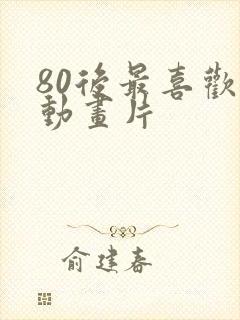 80後最喜歡
動畫片
俞建春